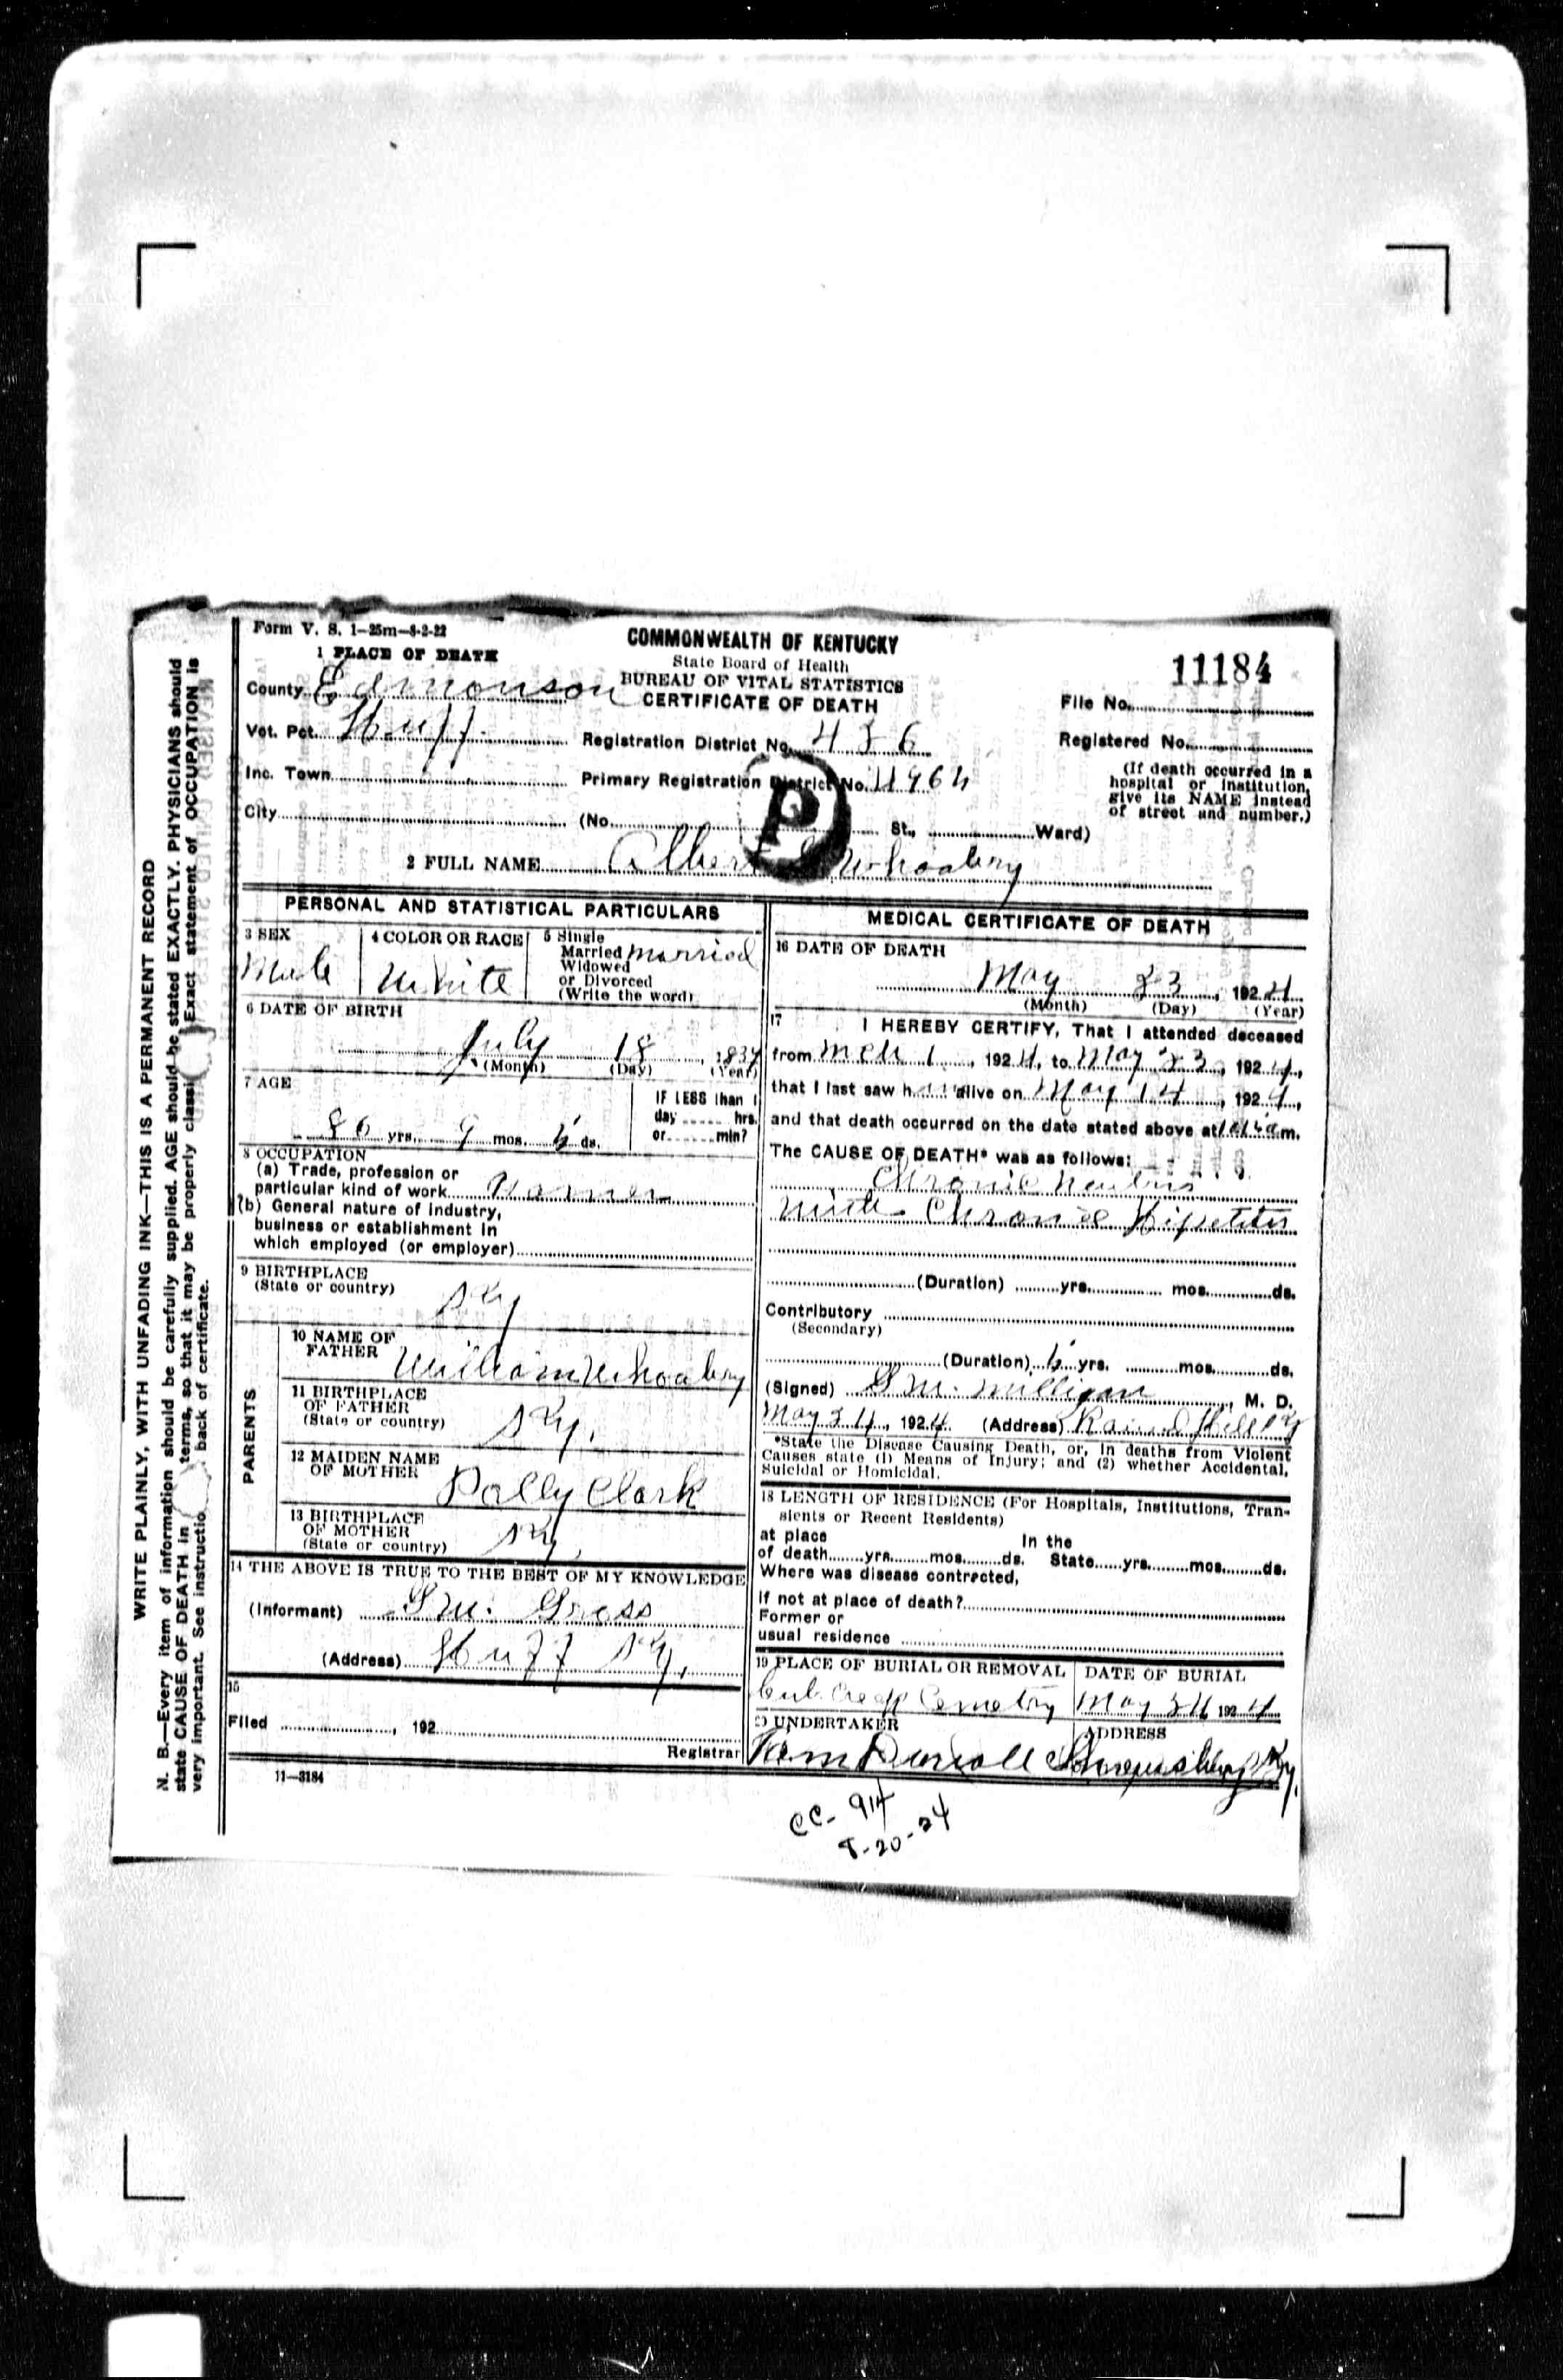 Form V. S. 1-25m-8-2-22
1 PLACE OF DEATH
COMMONWEALTH OF KENTUCKY
State Board of Health
BUREAU OF VITAL STATISTICS
CERTIFICATE OF DEATH
11184
File No.
County Edmonson
Vot. Pct. Huff
Registration District No. 436
Registered No.
Inc. Town
Primary Registration District No.
(If death occurred in a
hospital or institution,
give its NAME instead
of street and number.)
City
(No. St., Ward)
P
2 FULL NAME Albert Whoabry
PERSONAL AND STATISTICAL PARTICULARS
3 SEX
Male
4 COLOR OR RACE
White
5 Single
Married
Widowed
or Divorced
(Write the word)
Married
6 DATE OF BIRTH
July 18, 1837
(Month) (Day) (Year)
7 AGE
86 yrs. 9 mos. ds.
IF LESS than 1
day hrs.
or min?
8 OCCUPATION
(a) Trade, profession or
particular kind of work Farmer
(b) General nature of industry,
business or establishment in
which employed (or employer)
9 BIRTHPLACE
(State or country)
Ky
PARENTS
10 NAME OF
FATHER
William Whoabry
11 BIRTHPLACE
OF FATHER
(State or country)
Ky.
12 MAIDEN NAME
OF MOTHER
Polly Clark
13 BIRTHPLACE
OF MOTHER
(State or country)
Ky.
14 THE ABOVE IS TRUE TO THE BEST OF MY KNOWLEDGE
(Informant) Gross
(Address) Huff Ky.
15
Filed , 192
Registrar
11-3184
MEDICAL CERTIFICATE OF DEATH
16 DATE OF DEATH
May 23, 1924
(Month) (Day) (Year)
17 I HEREBY CERTIFY, That I attended deceased
from Mch 1, 1924, to May 23, 1924,
that I last saw h alive on May 14, 1924,
and that death occurred on the date stated above at m.
The CAUSE OF DEATH* was as follows:
Chronic
with Chronic Hipetites
(Duration) yrs. mos. ds.
Contributory
(Secondary)
(Duration) yrs. mos. ds.
(Signed) Milligan, M. D.
May 24, 1924 (Address) Hill Ky
*State the Disease Causing Death, or, in deaths from Violent
Causes state (1) Means of Injury; and (2) whether Accidental,
Suicidal or Homicidal.
18 LENGTH OF RESIDENCE (For Hospitals, Institutions, Tran-
sients or Recent Residents)
at place In the
of death yrs. mos. ds. State yrs. mos. ds.
Where was disease contracted,
if not at place of death?
Former or
usual residence
19 PLACE OF BURIAL OR REMOVAL
Cemetry
DATE OF BURIAL
May 24 1924
20 UNDERTAKER
Tom
ADDRESS
Ky.
CC- 914
8-20-24
WRITE PLAINLY, WITH UNFADING INK—THIS IS A PERMANENT RECORD
N. B.—Every item of information should be carefully supplied. AGE should be stated EXACTLY. PHYSICIANS should
state CAUSE OF DEATH in terms, so that it may be properly classi Exact statement of OCCUPATION is
very important. See instructio back of certificate.